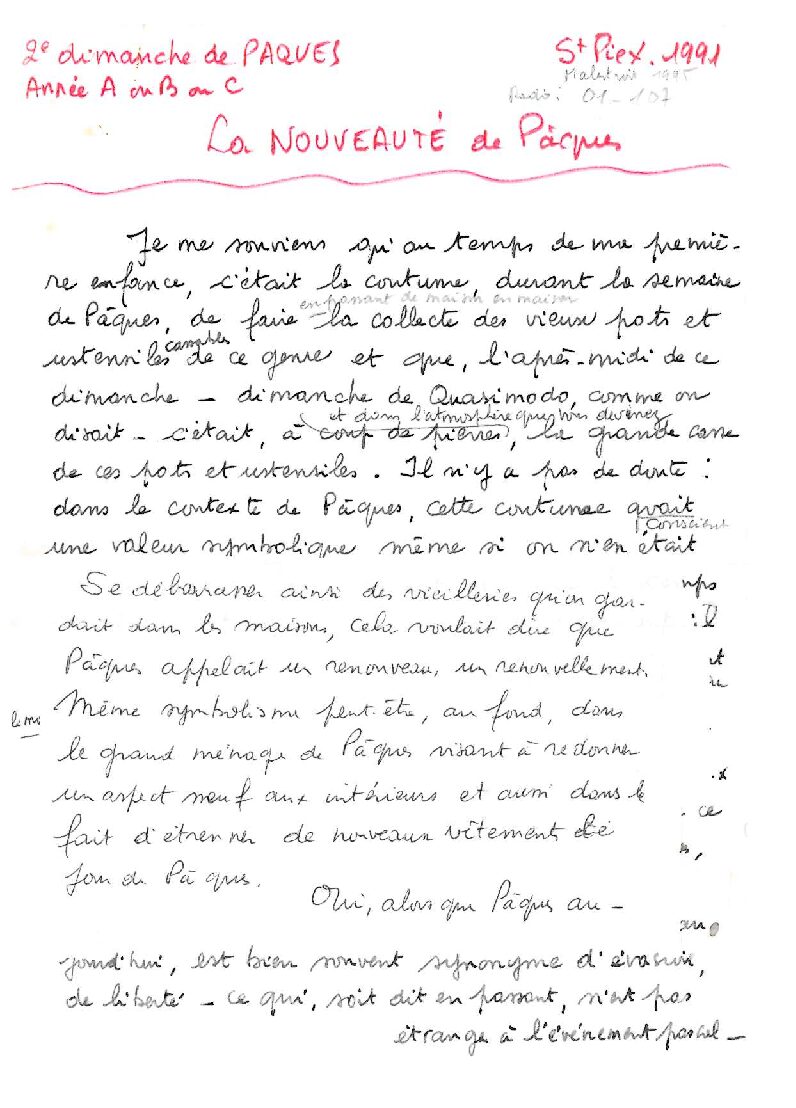 2e dimanche de PAQUES
Année A ou B ou C
St Piex. 1991
Malestroit 1995
Redo: 01-107
La NOUVEAUTÉ de Pâques
Je me souviens qu'au temps de ma premiè-
re enfance, c'était la coutume, durant la semaine
en passant de maison en maison
de Pâques, de faire la collecte des vieux pots et
ustensiles cassables de ce genre et que, l'après-midi de ce
dimanche - dimanche de Quasimodo, comme on
et dans l'atmosphère que vous devinez
disait - c'était, à coup de pierres, la grande casse
de ces pots et ustensiles. Il n'y a pas de doute :
dans le contexte de Pâques, cette coutume avait
conscient
une valeur symbolique même si on n'en était
Se débarrasser ainsi des vieilleries qu'on gar-
dait dans les maisons, cela voulait dire que
Pâques appelait un renouveau, un renouvellement.
Même symbolisme peut-être, au fond, dans
le grand ménage de Pâques visant à redonner
un aspect neuf aux intérieurs et aussi dans le
fait d'étrenner de nouveaux vêtements le
jour de Pâques.
Oui, alors que Pâques au-
jourd'hui, est bien souvent synonyme d'évasion,
de liberté - ce qui, soit dit en passant, n'est pas
étranger à l'événement pascal -